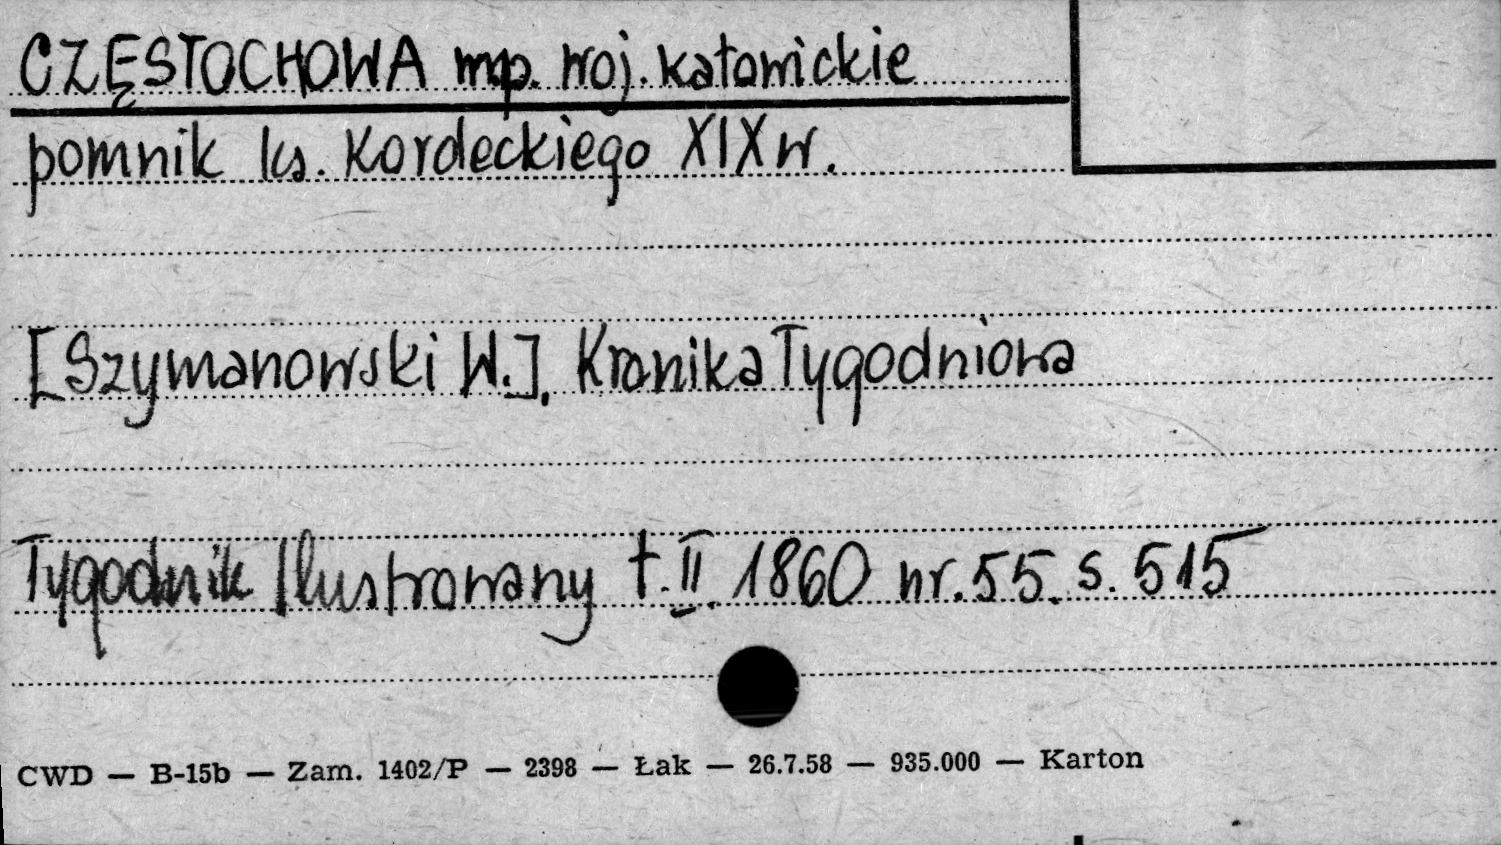 CZĘSTOCHOWA mp. woj. katowickie
pomnik ks. Kordeckiego XIX w.
[Szymanowski W.], Kronika Tygodniowa
Tygodnik Ilustrowany t. II. 1860 nr. 55. s. 515
CWD — B-15b — Zam. 1402/P — 2398 — Łak — 26.7.58 — 935.000 — Karton